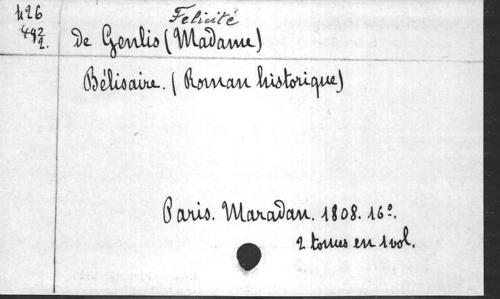 426
492
2.
Felicité
de Genlis (Madame)
Bélisaire. (Roman historique)
Paris. Maradan. 1808. 16º.
2 tomes en 1 vol.